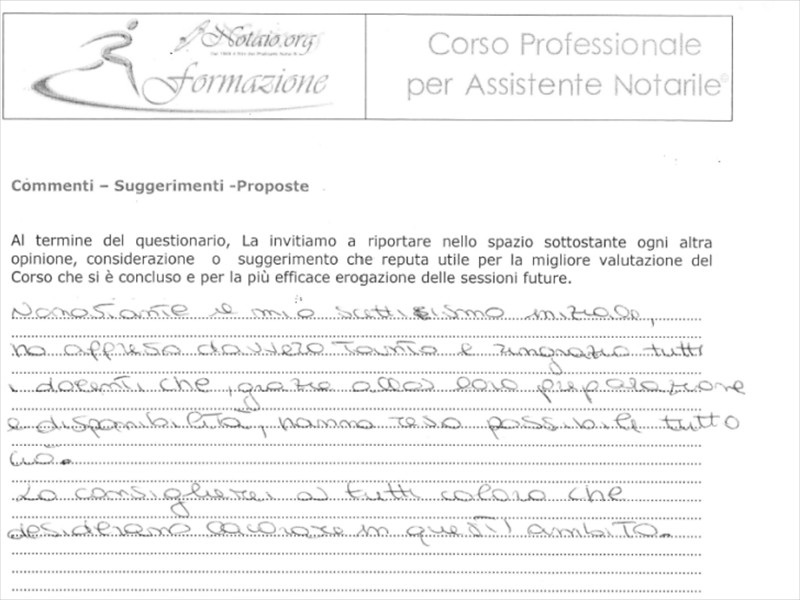 Notaio.org
Formazione
Corso Professionale
per Assistente Notarile©
Commenti – Suggerimenti -Proposte
Al termine del questionario, La invitiamo a riportare nello spazio sottostante ogni altra
opinione, considerazione o suggerimento che reputa utile per la migliore valutazione del
Corso che si è concluso e per la più efficace erogazione delle sessioni future.
Nonostante il mio scetticismo iniziale,
ho appreso davvero tanto e ringrazio tutti
i docenti che, grazie alla loro preparazione
e disponibilità, hanno reso possibile tutto
ciò.
Lo consiglierei a tutti coloro che
desiderano lavorare in quest'ambito.